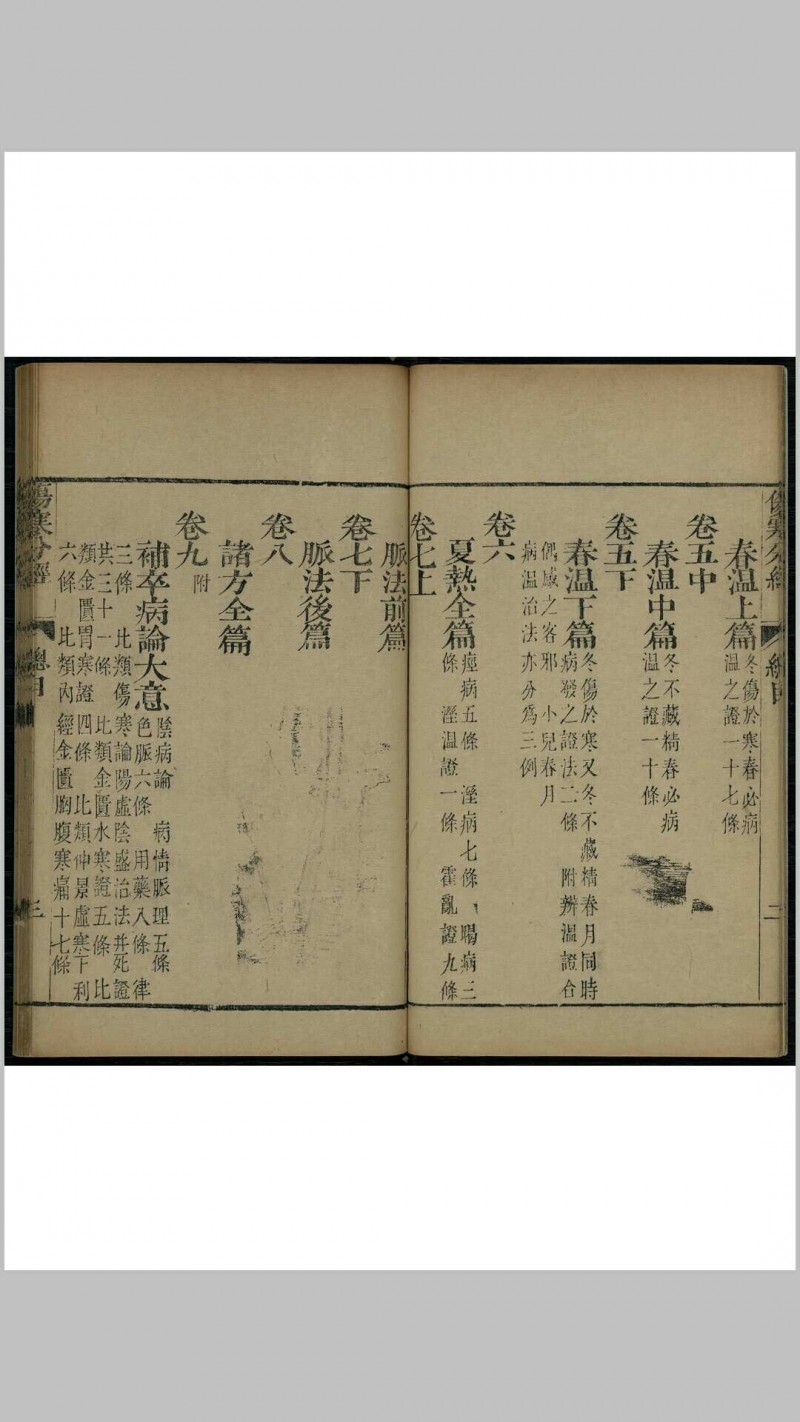 春温上篇 冬傷於寒春必病
温之證一十七條
卷五中
春温中篇 冬不藏精春必病
温之證一十條
卷五下
春温下篇 冬傷於寒又冬不藏精春月同時
病發之證法二條 附辨温證合
偶感之客邪 小兒春月
病温治法亦分爲三例
卷六
夏熱全篇 痙病五條 溼病七條 暍病三
條 溼温證一條 霍亂證九條
卷七上
脈法前篇
卷七下
脈法後篇
卷八
諸方全篇
卷九 附
補卒病論大意 陰病論 病情脈理五條
色脈六條 用藥八條 律
三條 比類傷寒論陽虛陰盛治法并死證
共三十一條 比類金匱水寒證五條 比
類金匱胃寒證四條 比類仲景虛寒下利
六條 比類內經金匱胸腹寒痛十七條
傷寒分經 總目 三